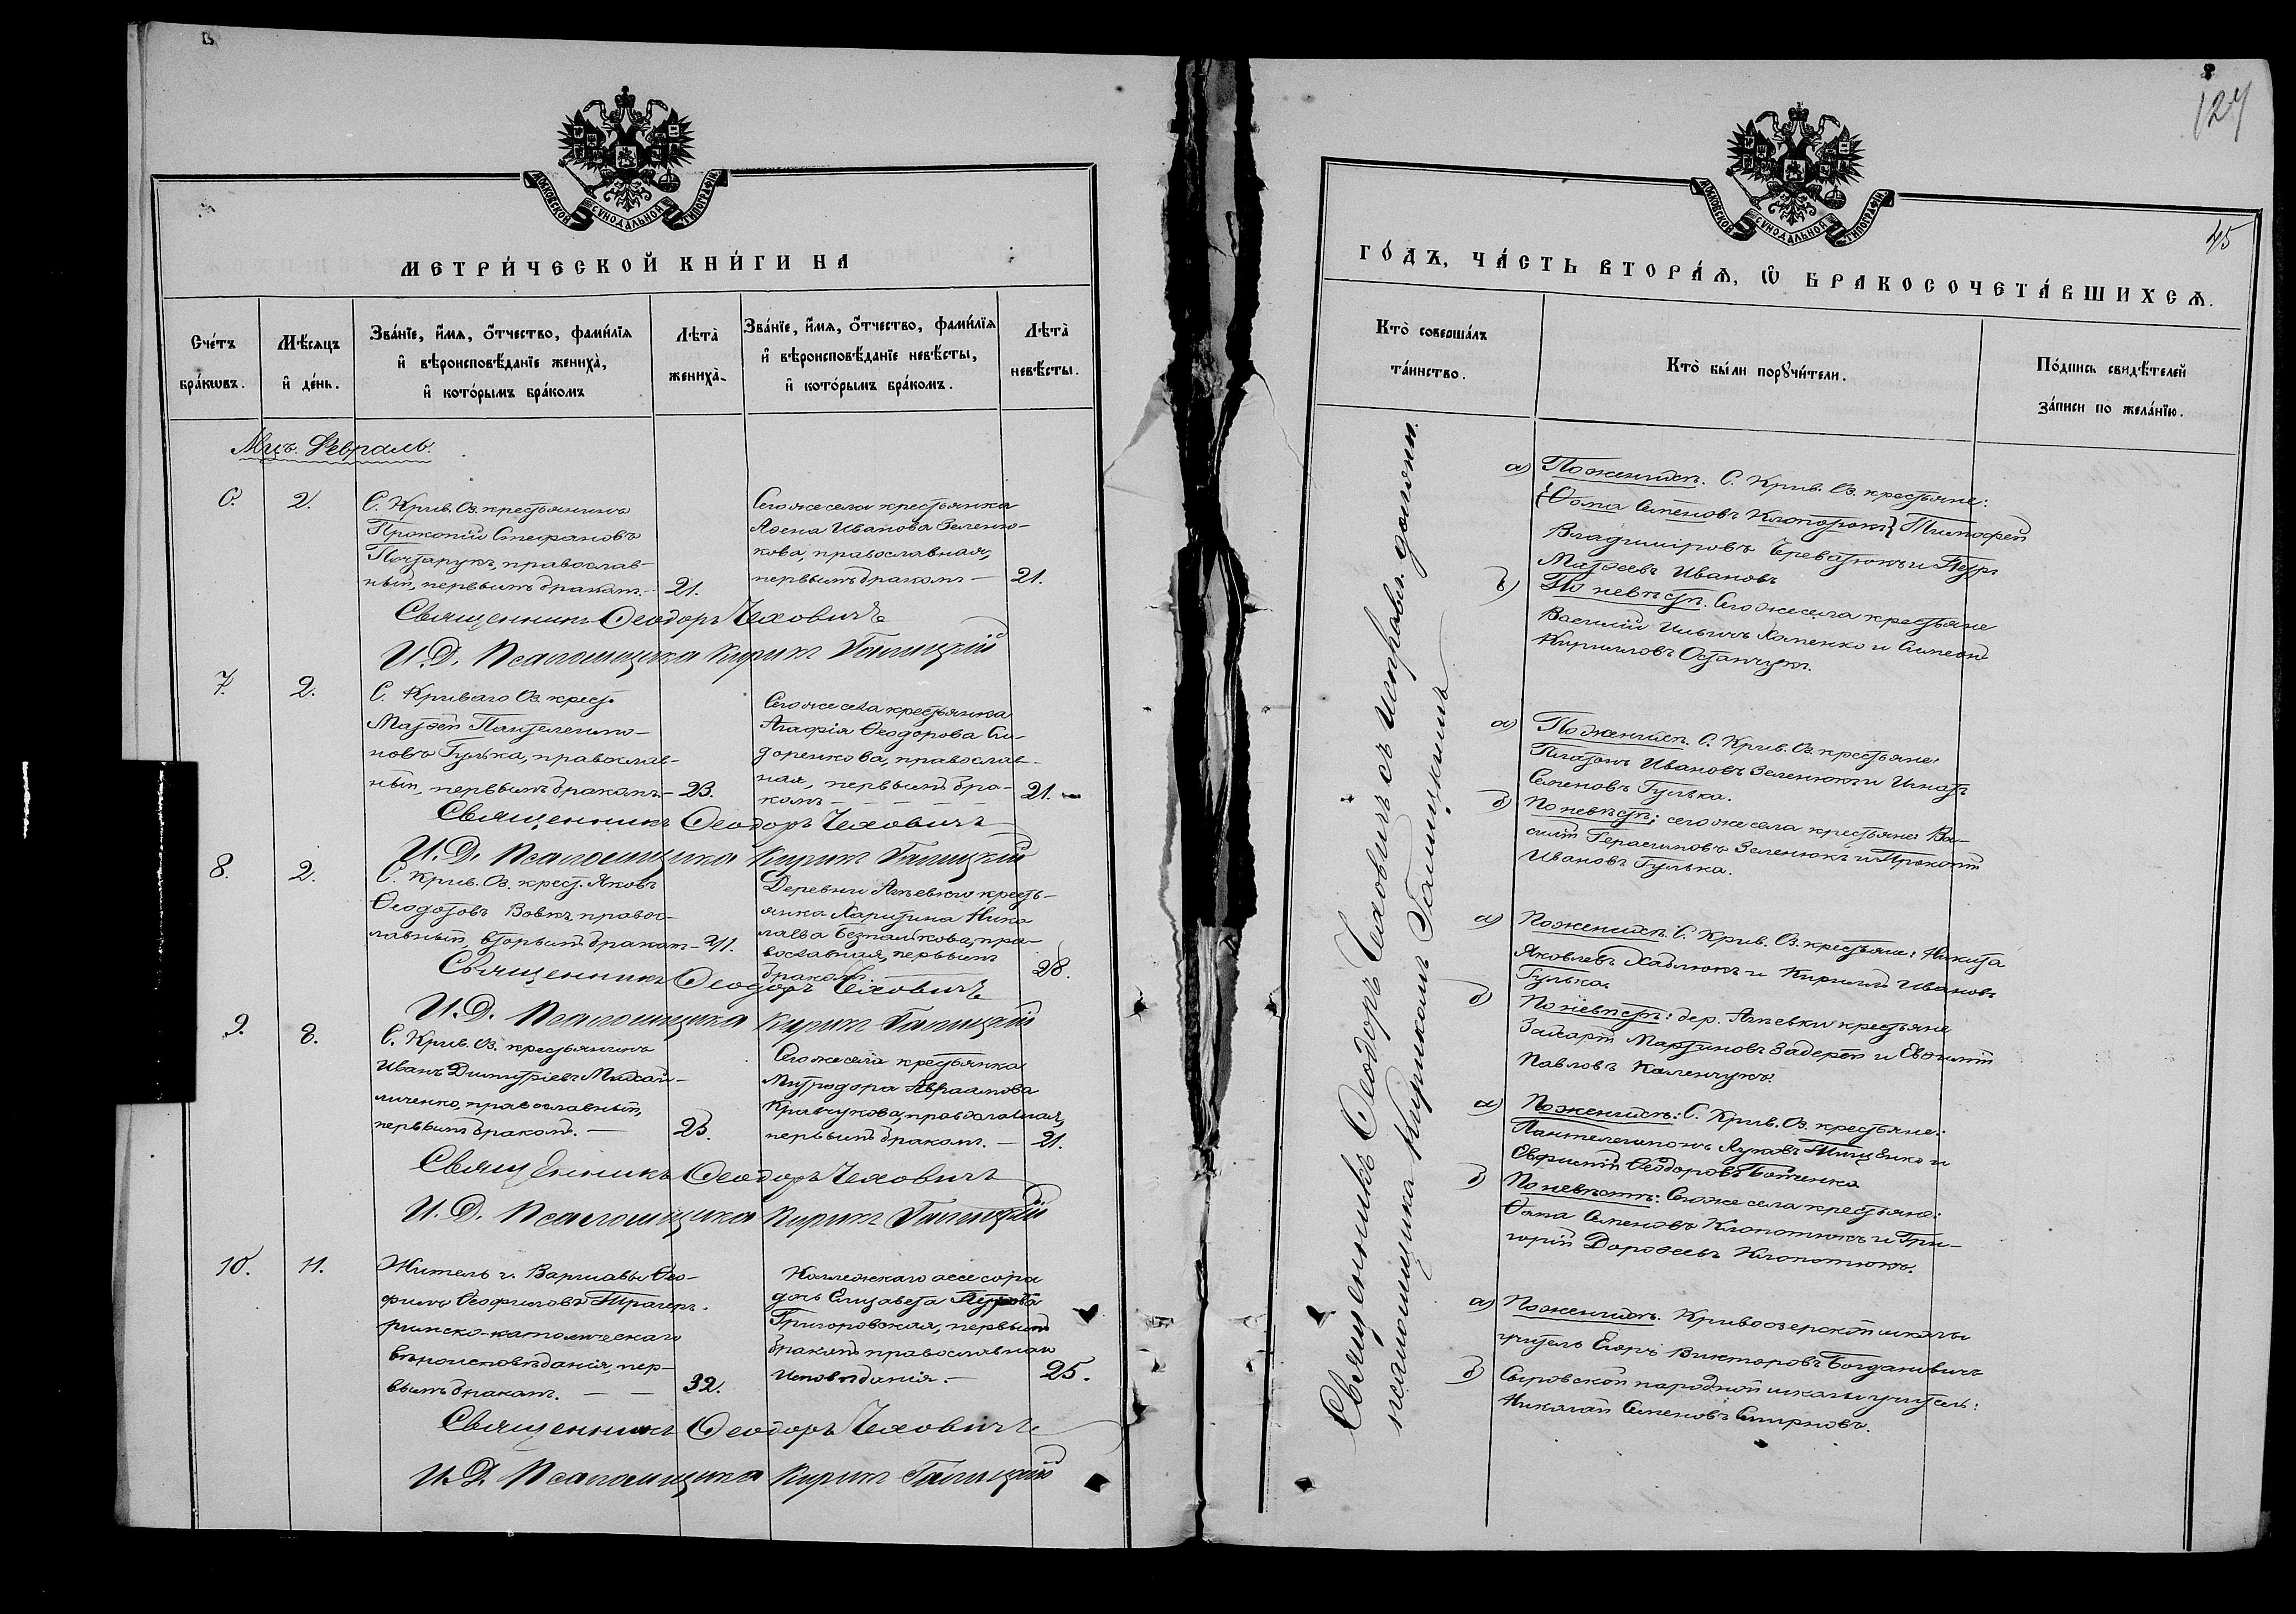 МОСКОВСКОЙ СѴНОДАЛЬНОЙ ТИПОГРАФІИ
МЕТРИ́ЧЕСКОЙ КНИ́ГИ НА
Сче́тъ бра́кѡвъ.
Мѣ́сяцъ и҆ де́нь.
Зва́нїе, и҆́мѧ, ѻ҆́тчество, фами́лїѧ
и҆ вѣроисповѣ́данїе жениха̀,
и҆ кото́рымъ бра́комъ
Лѣта̀ жениха̀.
Зва́нїе, и҆́мѧ, ѻ҆́тчество, фами́лїѧ
и҆ вѣроисповѣ́данїе невѣ́сты,
и҆ кото́рымъ бра́комъ.
Лѣта̀ невѣ́сты.
Мцъ. Февраль.
6. 2.
С. Крив. Оз. крестьянинъ
Прокопій Стефановъ
Почтарукъ, православ-
ный, первымъ бракомъ. - 21.
Сего же села крестьянка
Иванова Зеленю-
кова, православная,
первымъ бракомъ — 21.
Священникъ Ѳеодоръ Чеховичъ
И. Д. Псаломщика Кирикъ Галицкій
7. 2.
С. Криваго Оз. крест.
Матѳей Пантелеимо-
новъ Гулька, православ-
ный, первымъ бракомъ. - 23.
Сего же села крестьянка
Агафія Ѳеодорова Си-
доренкова, православ-
ная, первымъ бра-
комъ — — — 21.
Священникъ Ѳеодоръ Чеховичъ
И. Д. Псаломщика Кирикъ Галицкій
8. 2.
С. Крив. Оз. крест. Яковъ
Ѳеодотовъ Вовкъ, правос-
лавный, вторымъ бракомъ -
Деревни кресть-
янка Харитина Нико
лаева пра-
вославная, первымъ
бракомъ. 28.
Священникъ Ѳеодоръ Чеховичъ
И. Д. Псаломщика Кирикъ Галицкій
9. 8.
С. Крив. Оз. крестьянинъ
Иванъ Димитріевъ Михай-
личенко, православный,
первымъ бракомъ. — 25.
Сего же села крестьянка
Митродора Авраамова
Кравчукова, православная,
первымъ бракомъ. — 21.
Священникъ Ѳеодоръ Чеховичъ
И. Д. Псаломщика Кирикъ Галицкій
10. 11.
Житель г. Варшавы Ѳео-
филъ Ѳеофиловъ Трагеръ.
римско-католическаго
вѣроисповѣданія, пер-
вымъ бракомъ. — — 32.
Коллежскаго ассесора
дочь Елизавета Петрова
Григоровская, первымъ
бракомъ православнаго
исповѣданія. — 25.
Священникъ Ѳеодоръ Чеховичъ
И. Д. Псаломщика Кирикъ Галицкій
45
МОСКОВСКОЙ СѴНОДАЛЬНОЙ ТИПОГРАФІИ
ГО́ДЪ, ЧА́СТЬ ВТОРА́Ѧ, Ѽ БРАКОСОЧЕТА́ВШИХСѦ.
Кто̀ соверша́лъ
та́инство.
Кто̀ бы́ли порꙋчи́тели.
По́дпись свидѣ́телей
за́писи по жела́нїю.
Священникъ Ѳеодоръ Чеховичъ съ исправл. должн.
псаломщика Кирикомъ Галицкимъ
а) По женихѣ. С. Крив. Оз. крестьяне:
{Ѳома Семеновъ Клопотюкъ} Тимоѳей
Владиміровъ Череватюкъ и Петръ
Матѳеевъ Ивановъ
б) По невѣстѣ. Сего же села крестьяне
Василій Ильичъ Хоменко и Симеонъ
Кирилловъ Остапчукъ.
а) По женихѣ. С. Крив. Оз. крестьяне:
Платонъ Ивановъ Зеленюкъ и Игнатъ
Семеновъ Гулька.
б) По невѣстѣ; сего же села крестьяне Ва-
силій Герасимовъ Зеленюкъ и Прокопій
Ивановъ Гулька.
а) По женихѣ. С. Крив. Оз. крестьяне: Никита
Яковлевъ и Кириллъ Ивановъ
Гулька.
б) По невѣстѣ: дер. крестьяне
Захарій Мартиновъ Задерей и Евѳимій
Павловъ Каленчукъ.
а) По женихѣ: С. Крив. Оз. крестьяне:
Пантелеимонъ Луковъ Тищенко и
Евфимій Ѳеодоровъ
б) По невѣстѣ: Сего же села крестьяне:
Ѳома Семеновъ Клопотюкъ и Гри-
горій Дороѳеевъ Клопотюкъ.
а) По женихѣ. Кривоозерской школы
учитель Егоръ Викторовъ Богдановичъ
б) Сыровской народной школы учитель:
Николай Семеновъ Смирновъ.